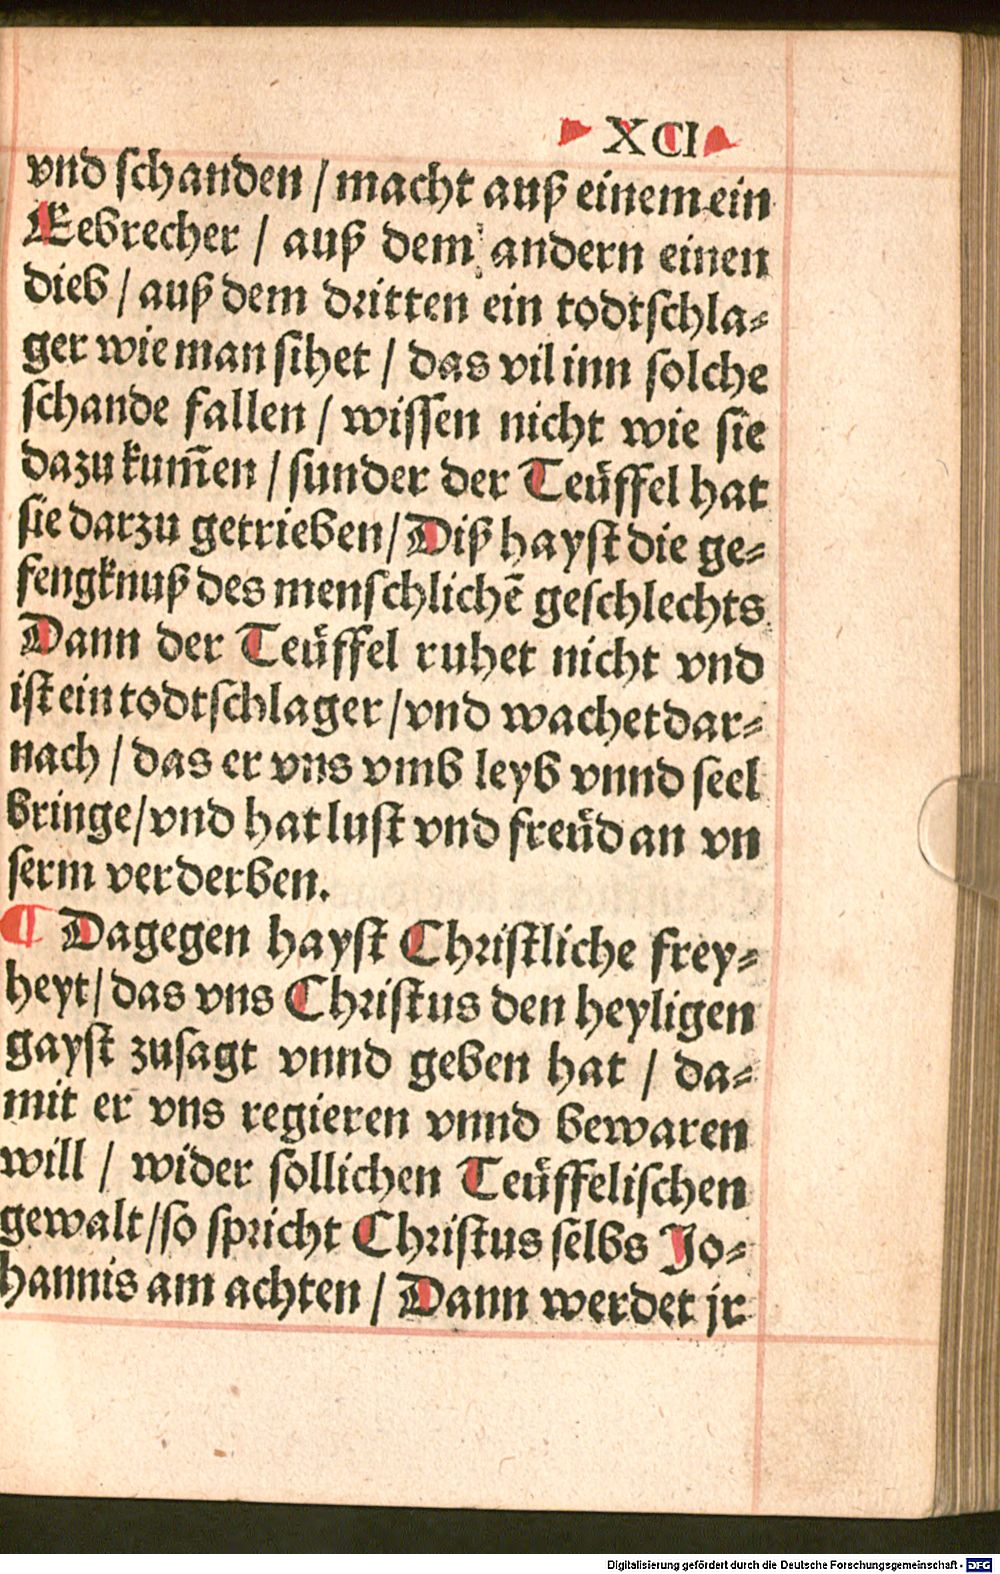 XCI
vnd schanden / macht auß einem ein
Eebrecher / auß dem andern einen
dieb / auß dem dritten ein todtschla⸗
ger wie man sihet / das vil inn solche
schande fallen / wissen nicht wie sie
dazu kum̃en / sunder der Teüffel hat
sie darzu getrieben / Diß hayst die ge⸗
fengknuß des menschlichē geschlechts
Dann der Teüffel ruhet nicht vnd
ist ein todtschlager / vnd wachet dar⸗
nach / das er vns vmb leyb vnnd seel
bringe / vnd hat lust vnd freüd an vn
serm verderben.
¶ Dagegen hayst Christliche frey⸗
heyt / das vns Christus den heyligen
gayst zusagt vnnd geben hat / da⸗
mit er vns regieren vnnd bewaren
will / wider sollichen Teüffelischen
gewalt / so spricht Christus selbs Jo⸗
hannis am achten / Dann werdet jr
Digitalisierung gefördert durch die Deutsche Forschungsgemeinschaft - DFG